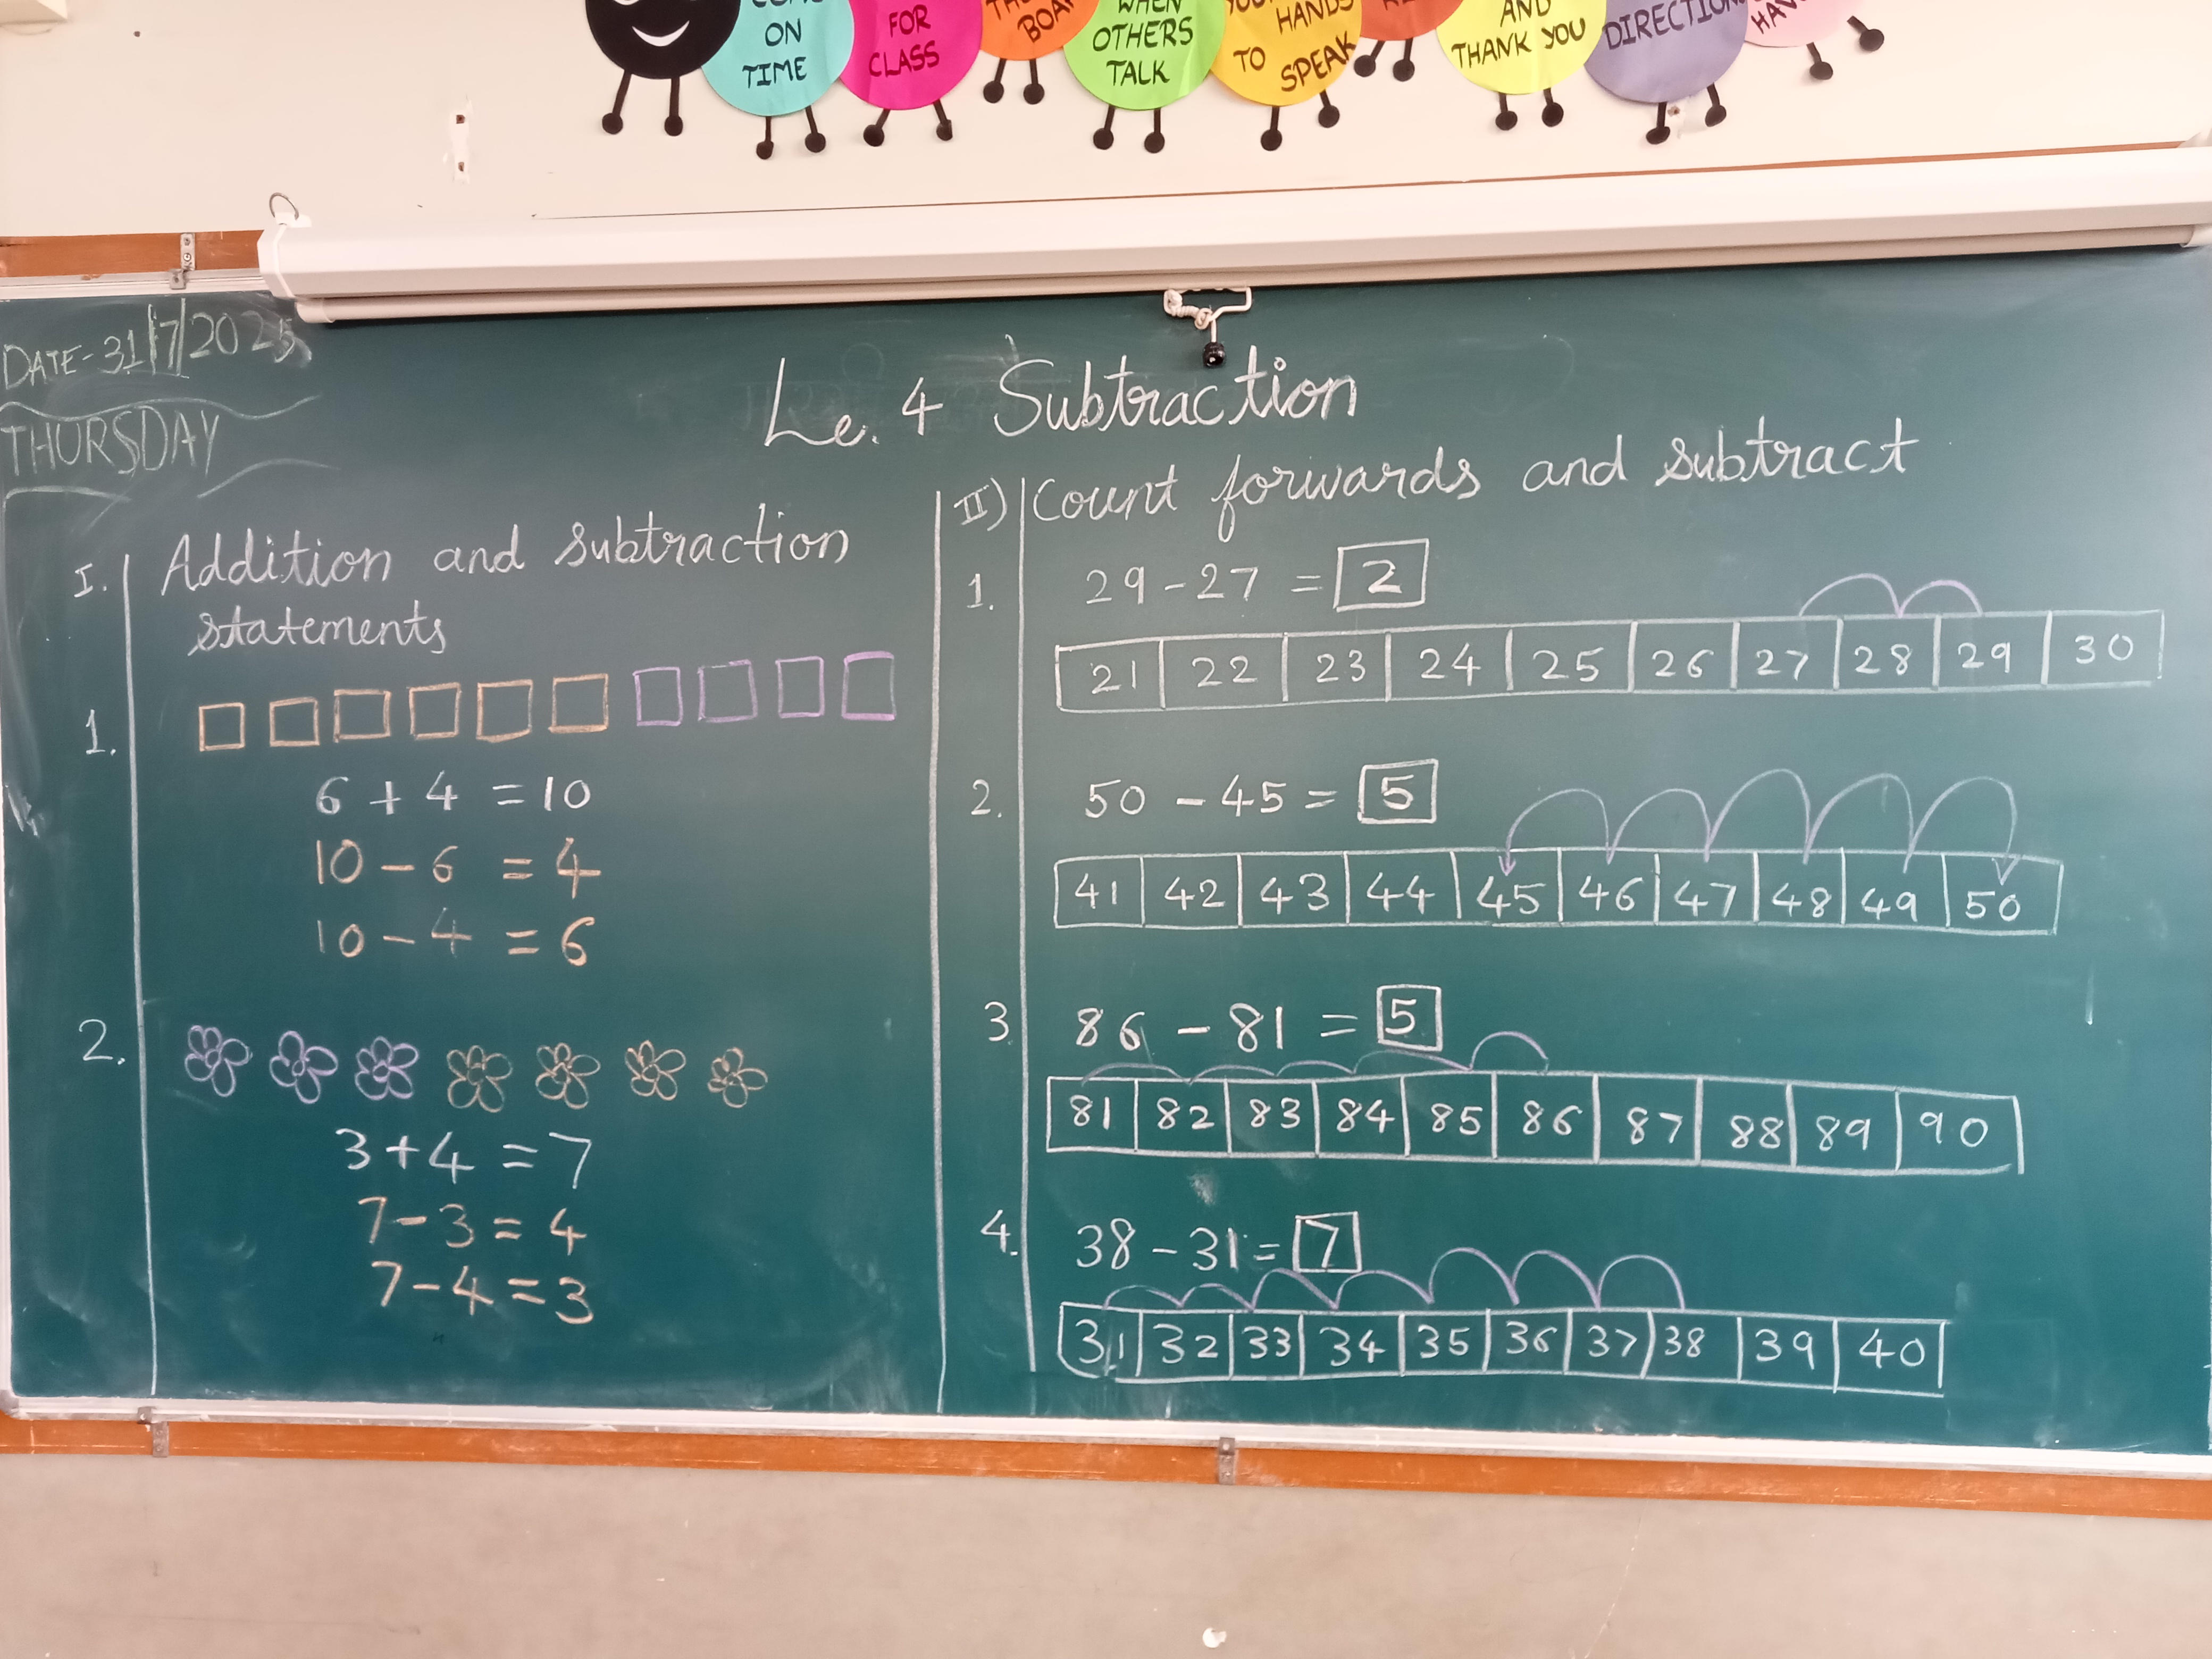 ON
TIME
FOR
CLASS
OTHERS
TALK
HANDS
TO SPEAK
AND
THANK YOU
DATE-31/7/2025
THURSDAY
Le. 4 Subtraction
I. Addition and subtraction
statements
1.
6 + 4 = 10
10 - 6 = 4
10 - 4 = 6
2.
3+4 = 7
7-3 = 4
7-4 = 3
II) Count forwards and subtract
1. 29-27 = 2
21 22 23 24 25 26 27 28 29 30
2. 50 - 45 = 5
41 42 43 44 45 46 47 48 49 50
3 86 - 81 = 5
81 82 83 84 85 86 87 88 89 90
4. 38-31= 7
31 32 33 34 35 36 37 38 39 40